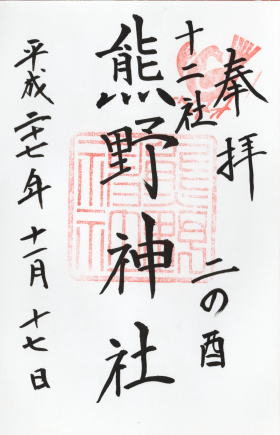 奉拝
二の酉
十二社
熊野神社
平成二十七年十一月十七日